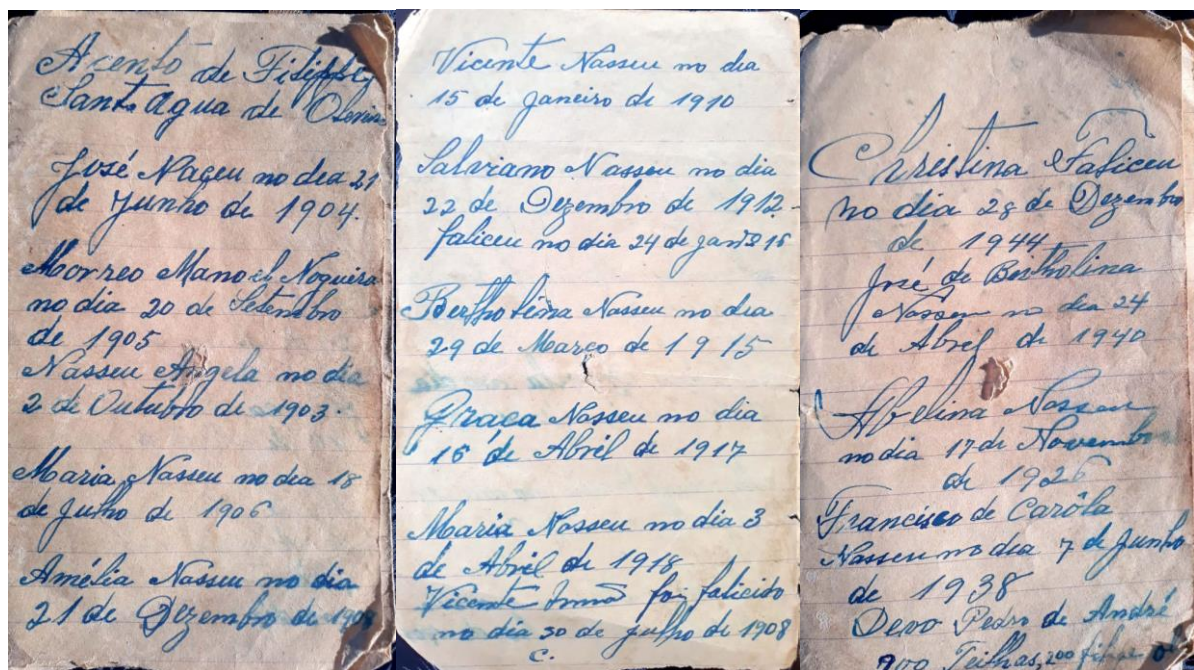 Acento de Filippe
Sant Agua de Oliveira
José Naceu no dia 21
de Junho de 1904.
Morreo Manoel Nogueira
no dia 20 de Setembro
de 1905
Nasseu Angela no dia
2 de Outubro de 1903.
Maria Nasseu no dia 18
de Julho de 1906
Amélia Nasseu no dia
21 de Dezembro de 1908
Vicente Nasseu no dia
15 de Janeiro de 1910
Salviano Nasseu no dia
22 de Dezembro de 1912.
faliceu no dia 24 de 15
Bertholina Nasseu no dia
29 de Março de 1915
Graça Nasseu no dia
16 de Abril de 1917
Maria Nasseu no dia 3
de Abril de 1918
Vicente Irmão foi falicido
no dia 30 de Julho de 1908
C.
Christina Faliceu
no dia 28 de Dezembro
de 1944
José de Bertholina
Nasseu no dia 24
de Abril de 1940
Abelina Nasseu
no dia 17 de Novembro
de 1926
Francisco de Carôla
Nasseu no dia 7 de Junho
de 1938
Devo Pedro de André
900 Teilhas, 200